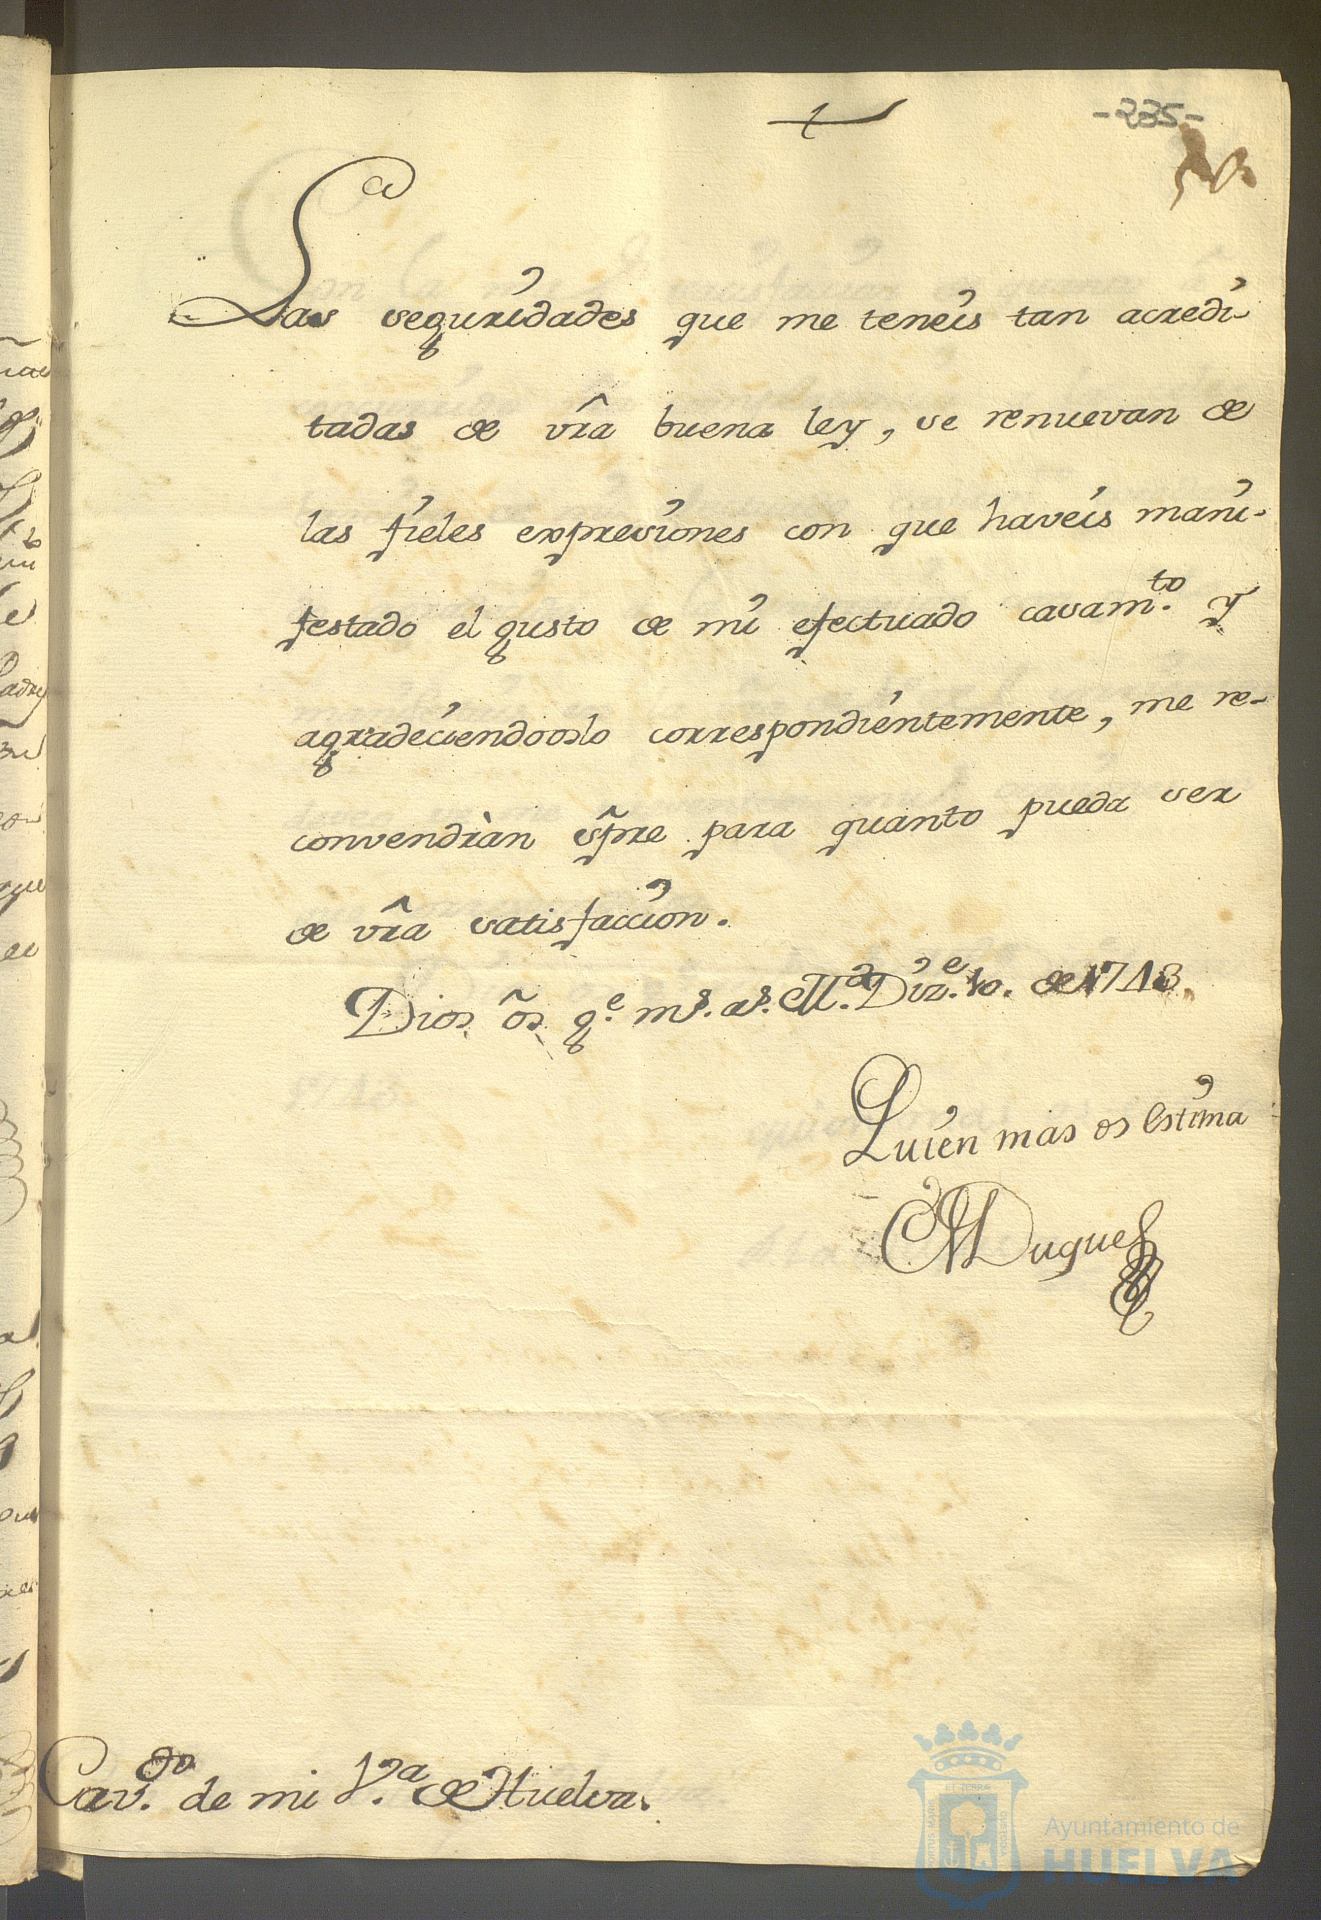 -235-
Las seguridades que me teneis tan acredi-
tadas de vr̂a buena ley, se renuevan de
las fieles expresiones con que haveis mani-
festado el gusto de mi efectuado casam.to y
agradeciendooslo correspondientemente, me re-
convendràn s̃pre para quanto pueda ser
de vr̂a satisfaccion.
Dios õs g.e m.s a.s M.d Diz.e 10. de 1713.
Quien mas os estima
El Duque
Cav.do de mi V.a de Huelva.
Ayuntamiento de
HUELVA